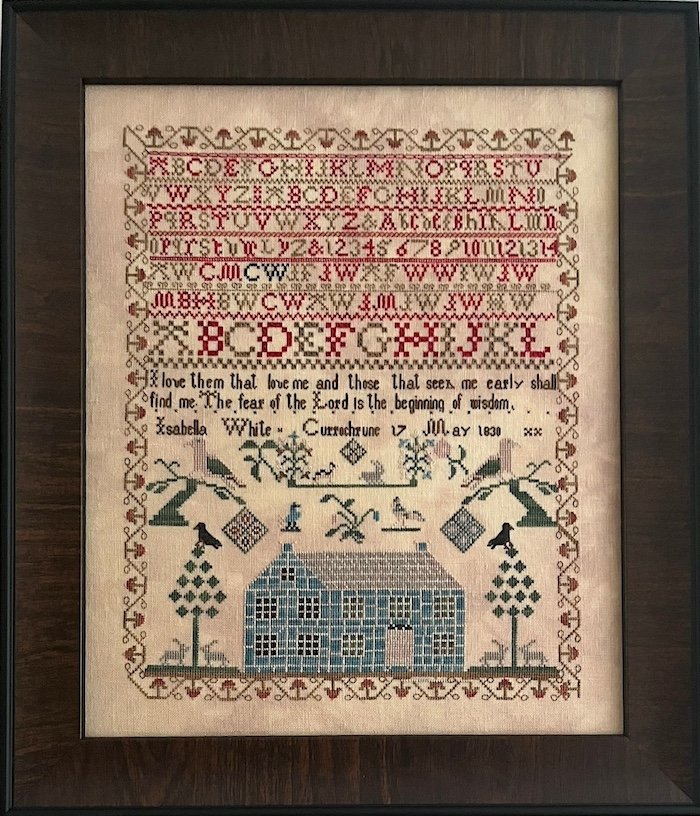 ABCDEFGHIJKLMNOPQRSTU
VWXYZIABCDEFGHIJKLMNO
PQRSTUVWXYZ&AbcdefBhiKLmn
opqrstuvwxyZ&1234567891011121314
CMCW IW WWIW JW
MBHBWCWAWJMJWJWHW
ABCDEFGHIJKL
I love them that love me and those that seek me early shall
find me. The fear of the Lord is the beginning of wisdom.
Isabella White Currochrune 17 May 1830 xx